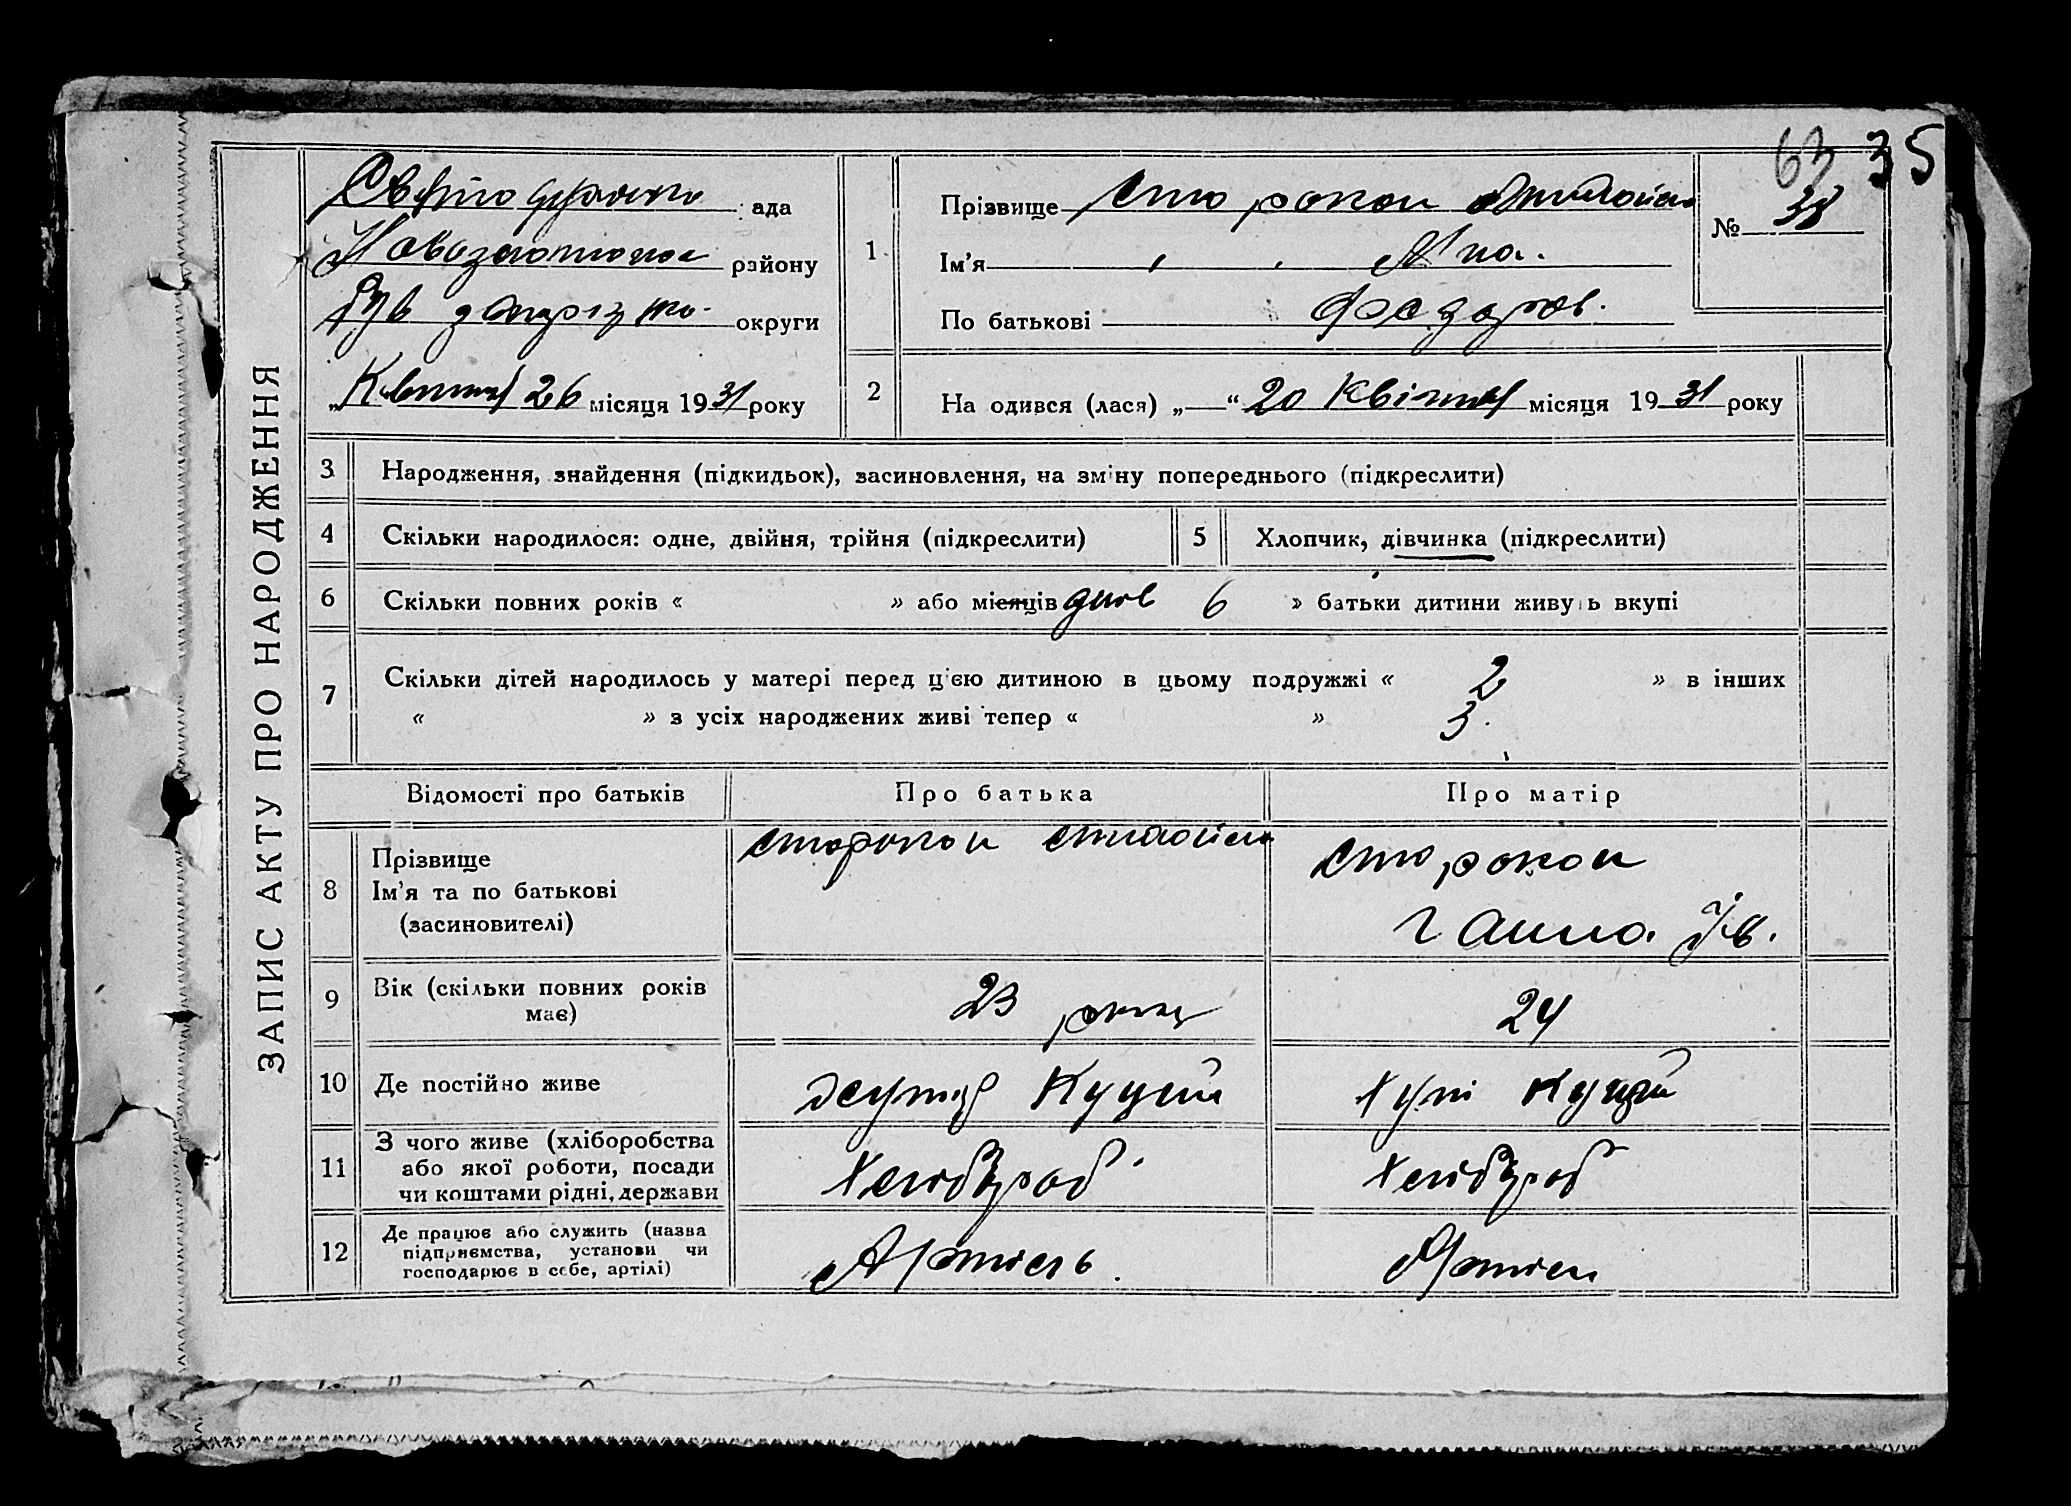 63 35
ЗАПИС АКТУ ПРО НАРОДЖЕННЯ
ада
району
округи
26 місяця 1931 року
1
Прізвище
Ім'я
По батькові Федоров.
№ 38
2
На одився (лася) „ “ 20 Квітня місяця 1931 року
3 Народження, знайдення (підкидьок), засиновлення, на зміну попереднього (підкреслити)
4 Скільки народилося: одне, двійня, трійня (підкреслити)
5 Хлопчик, дівчинка (підкреслити)
6 Скільки повних років « » або місяців днів 6 » батьки дитини живу ь вкупі
7 Скільки дітей народилось у матері перед цією дитиною в цьому подружжі « 2 » в інших
« » з усіх народжених живі тепер « » 3.
Відомості про батьків
Про батька
Про матір
8 Прізвище
Ім'я та по батькові
(засиновителі)
Сторокон
Ганна Ів.
9 Вік (скільки повних років
має)
23
24
10 Де постійно живе
Хутір Куций
Хут Куций
11 З чого живе (хліборобства
або якої роботи, посади
чи коштами рідні, держави
Хлібороб
Хлібороб
12 Де працює або служить (назва
підприємства, установи чи
господарює в себе, артілі)
Артіль
Артіль